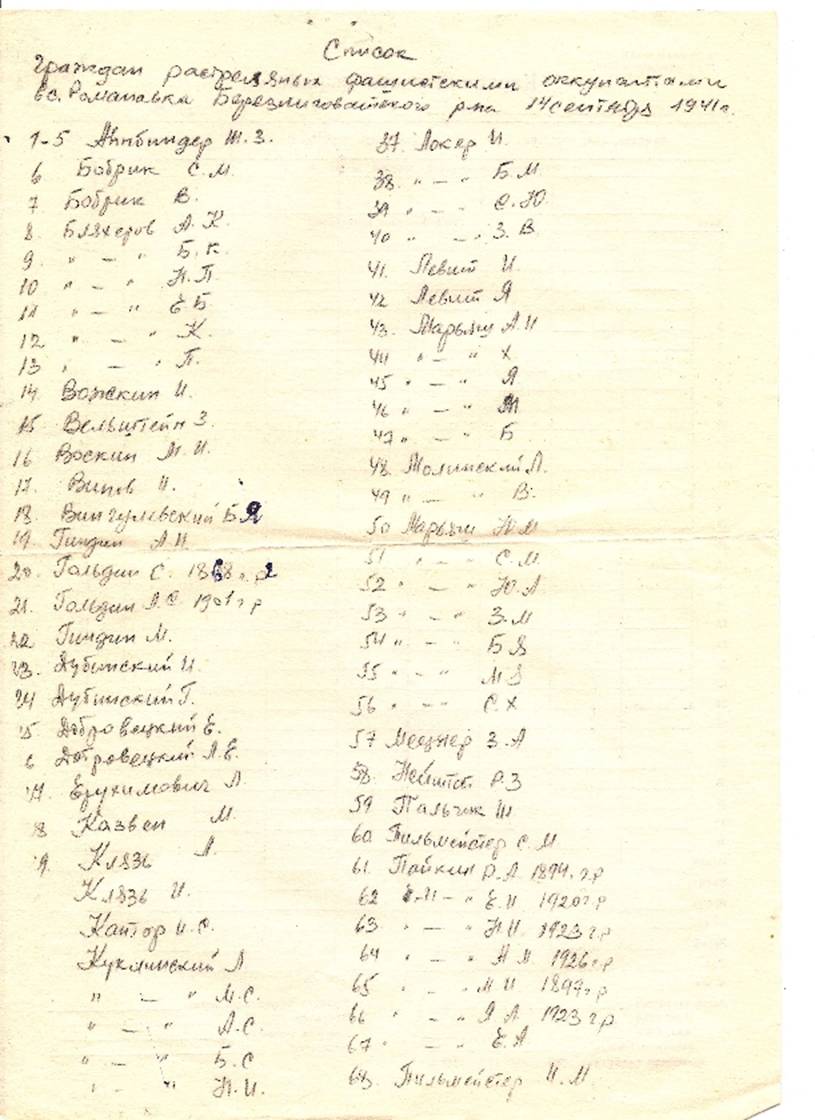 Список
граждан растреляных фашистскими оккупантами
в с. Романовка Березниговатского р-на 14 сентября 1941г.
1-5 Айнбиндер Ш.З.
6 Бобрик С.М.
7 Бобрик В.
8. Бляхеров А.К.
9. " — " Б.К.
10 " — " Н.П.
11 " — " Е Б
12 " — " К.
13 " — " П.
14 Вожский И.
15 Вельштейн З.
16 Воский М.И.
17. Винов И.
18. Вингулевский Б Я
19. Гиндин А.И.
20. Гольдин С. 1868 г.р
21. Гольдин А.С. 1901 г р
22 Гиндин М.
23. Дубинский И.
24 Дубинский Г.
5 Добровецкий Е.
6 Добровецкий Л.Е.
Ерухимович Л
8 Казвен М.
9. Клязь Л.
Клязь И.
Кантор И.С.
Куклинский Л
" — " М.С.
" — " А.С.
" — " Б.С
" — " Н.И.
37. Локер И.
38. " — " Б.М
39 " — " С.Ю.
40 " — " З.В
41. Левит И.
42 Левит Я
43. Марьяш А.И
44 " — " Х
45 " — " Я
46 " — "
47 " — " Б
48. Молинский Л.
49 " — " В.
50 Марьяш Ю.М
51 " — " С.М.
52 " — " Ю.А
53 " — " З.М
54 " — " Б Я
55 " — " М Я
56 " — " С.Х
57 З.А
58. Р.З
59 Пальчик Ш
60 Пильмейстер С.М
61. Пайкин Р.Л. 1894. г.р
62 " — " Е.И 1920 г.р
63 " — " Н.И. 1923 г.р
64 " — " А М. 1926 г.р
65 " — " М И 1897 г.р
66 " — " Я Л. 1923 г.р
67 " — " Е.А
68. Пильмейстер И.М